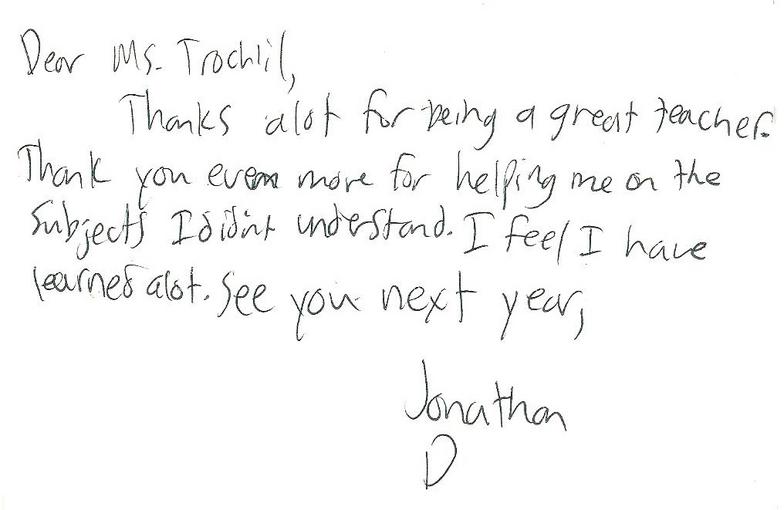 Dear Ms. Trochlil,
Thanks alot for being a great teacher.
Thank you even more for helping me on the
subjects I didin't understand. I feel I have
learned alot. See you next year,
Jonathan
D